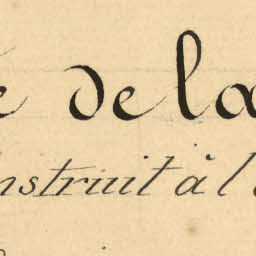 de la
instruit à l'